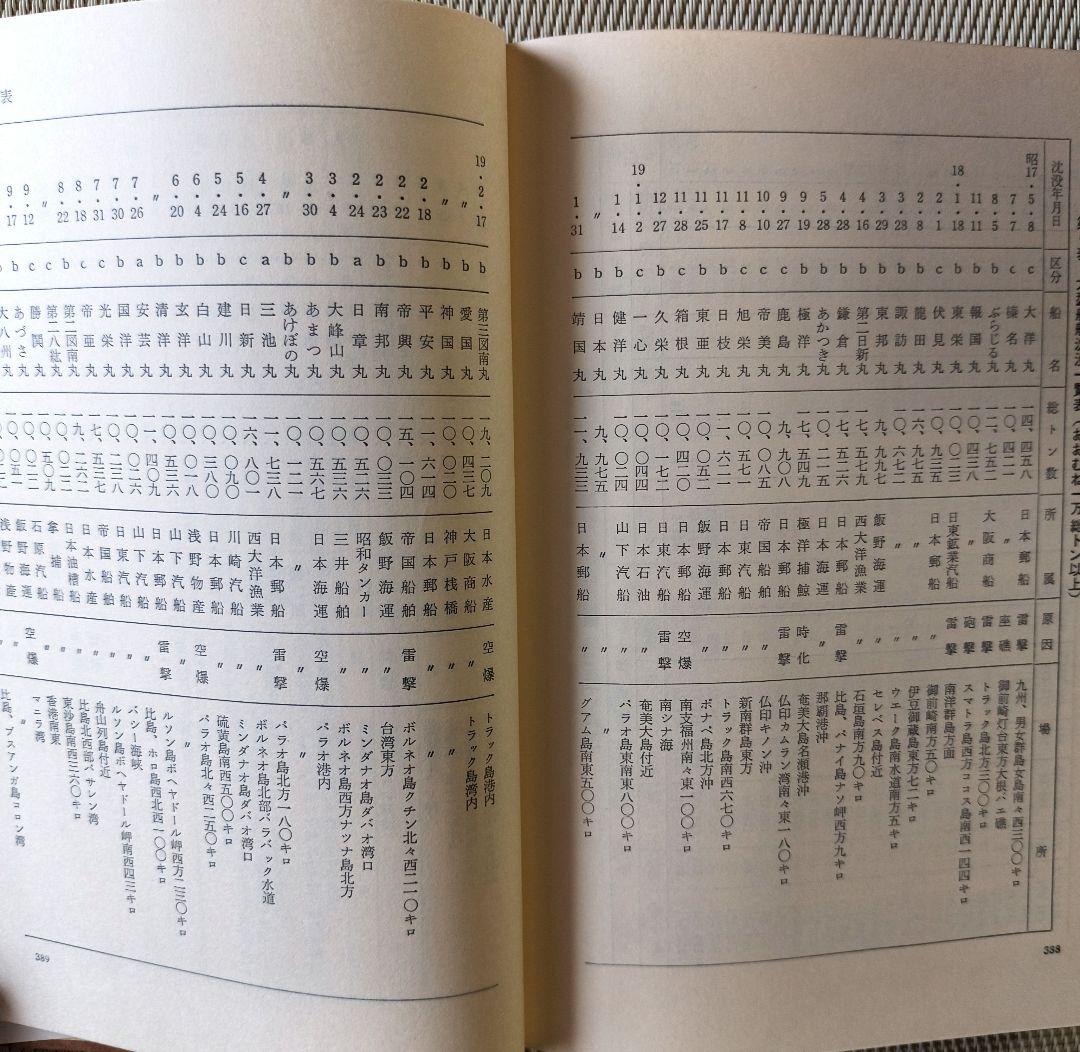 沈没年月日 区分 船名 総トン数 所属 原因 場所
昭17・5・8 c 大洋丸 一四、四五八 日本郵船 雷撃 九州、男女群島女島南々西三〇〇キロ
7・7 c 榛名丸 一〇、四二一 〃 座礁 御前崎灯台東方大根バエ礁
8・5 b ぶらじる丸 一二、七五二 大阪商船 雷撃 トラック島北方三〇〇キロ
11・11 b 報国丸 一〇、四三八 〃 砲撃 スマトラ島西方ココス島南西一四四〇キロ
18・1・18 b 東栄丸 一〇、〇二三 日東鉱業汽船 雷撃 南洋群島方面
2・1 c 伏見丸 一〇、九三五 日本郵船 〃 御前崎南方五〇キロ
2・8 b 龍田丸 一六、九七五 〃 〃 伊豆御蔵島東方七二キロ
3・28 b 諏訪丸 一〇、六七二 〃 〃 ウエーク島南水道南方五キロ
3・29 b 東邦丸 九、九九七 飯野海運 〃 セレベス島付近
4・16 b 第二日新丸 一七、五二六 西大洋漁業 〃 石垣島南方九〇キロ
4・28 b 鎌倉丸 日本郵船 雷撃 比島、パナイ島ナソ岬西方九キロ
5・28 b あかつき丸 一〇、二一五 日本海運 〃 那覇港沖
9・19 b 極洋丸 一七、五四九 極洋捕鯨 時化 奄美大島名瀬港沖
9・27 b 鹿島丸 日本郵船 雷撃 仏印カムラン湾南々東一八〇キロ
10・10 c 帝美丸 一〇、〇八五 帝国船舶 〃 仏印キノン沖
11・8 b 旭栄丸 日東汽船 〃 新南群島東方
11・17 b 日枝丸 日本郵船 〃 トラック島南西六七〇キロ
11・25 b 東亜丸 一〇、〇五二 飯野海運 〃 ボナペ島北方沖
11・28 b 箱根丸 一〇、四二〇 日本郵船 空爆 南支福州南々東一〇〇キロ
12・27 c 久栄丸 一〇、一七二 日東汽船 雷撃 南シナ海
19・1・2 b 一心丸 一〇、〇四四 日本石油 〃 奄美大島付近
1・14 b 健洋丸 一〇、〇二四 山下汽船 〃 パラオ島東南東八〇〇キロ
〃 b 日本丸 九、九七五 〃 〃 〃
1・31 b 靖国丸 一一、九三三 日本郵船 〃 グアム島南東五〇〇キロ
388
表
19・2・17 b 第三図南丸 一九、二〇九 日本水産 空爆 トラック島港内
〃 c 愛国丸 一〇、四三七 大阪商船 〃 トラック島湾内
〃 b 神国丸 一〇、〇二〇 神戸桟橋 〃 〃
2・18 b 平安丸 一一、六一四 日本郵船 〃 〃
2・22 b 帝興丸 一五、一〇四 帝国船舶 雷撃 ボルネオ島クチン北々西二一〇キロ
2・23 b 南邦丸 一〇、〇三三 飯野海運 〃 台湾東方
2・24 a 日章丸 一〇、五二六 昭和タンカー 〃 ミンダナオ島ダバオ湾口
3・4 b 大峰山丸 一〇、五三六 三井船舶 〃 ボルネオ島西方ナツナ島北方
3・30 b あまつ丸 一〇、五六七 日本海運 空爆 パラオ港内
〃 b あけぼの丸 一〇、一二一 〃 〃 〃
4・27 a 三池丸 一一、七三八 日本郵船 雷撃 パラオ島北方一八〇キロ
5・16 c 日新丸 一六、八〇一 西大洋漁業 〃 ボルネオ島北部バラバック水道
5・24 b 建川丸 一〇、〇九〇 川崎汽船 〃 ミンダナオ島ダバオ湾口
6・4 b 白山丸 一〇、三八〇 日本郵船 〃 硫黄島南西五〇〇キロ
6・20 b 玄洋丸 一〇、〇一八 浅野物産 空爆 パラオ島北々西二五〇キロ
〃 b 清洋丸 一〇、五三六 山下汽船 〃 〃
7・26 a 安芸丸 一一、四〇九 日本郵船 雷撃 ルソン島ボヘヤドール岬西方二三〇キロ
7・30 b 国洋丸 山下汽船 〃 比島、ホロ島西北西一〇〇キロ
7・31 c 光栄丸 日東汽船 〃 バシー海峡
8・18 c 帝亜丸 帝国船舶 〃 ルソン島ボヘヤドール岬南西四三キロ
8・22 b 第二図南丸 日本水産 〃 舟山列島付近
〃 c 第二八紘丸 日本油槽船 〃 比島北西部バサレン湾
9・12 c 勝関丸 拿捕船 〃 東沙島南西三六〇キロ
9・17 b あづさ丸 石原汽船 〃 香港南東
大八州丸 飯野海運 空爆 マニラ湾
浅野物産 〃 〃
比島、ブスアンガ島コロン湾
389